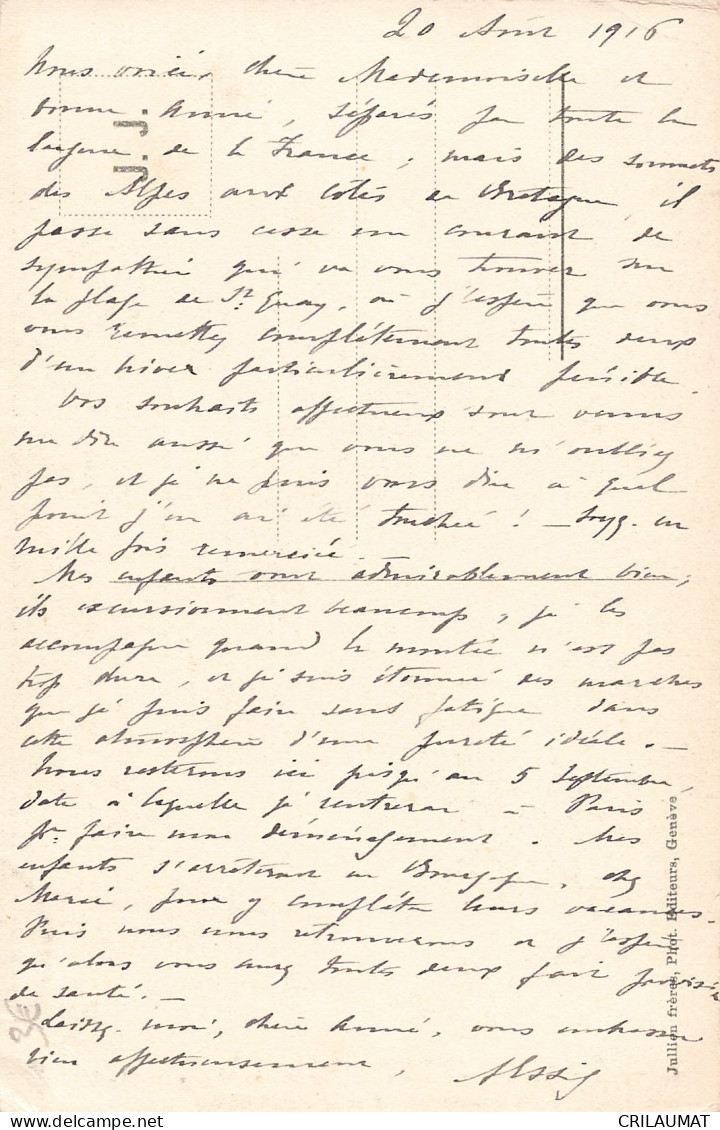 20 Août 1916
Nous voici, chère Mademoiselle et
bonne Amie, séparés par toute la
largeur de la France ; mais des sommets
des Alpes aux côtes de Bretagne, il
passe sans cesse un courant de
sympathie qui va vous trouver sur
la plage de St Quay, où j'espère que vous
vous remettez complètement toutes deux
d'un hiver particulièrement pénible.
Vos souhaits affectueux sont venus
me dire aussi que vous ne m'oubliez
pas, et je ne puis vous dire à quel
point j'en ai été touchée ! — Soyez-en
mille fois remerciée.
Mes enfants vont admirablement bien ;
ils excursionnent beaucoup, je les
accompagne quand la montée n'est pas
trop dure, et je suis étonnée des marches
que je puis faire sans fatigue dans
cette atmosphère d'une pureté idéale. —
Nous resterons ici jusqu'au 5 Septembre,
date à laquelle je rentrerai à Paris
pr faire mon déménagement. Mes
enfants s'arrêteront en Bourgogne, chez
pour y compléter leurs vacances.
Puis nous nous retrouverons et j'espère
qu'alors vous aurez toutes deux fait provision
de santé. —
Laissez-moi, chère Amie, vous embrasser
bien affectueusement,
J. J.
Jullien frères, Phot. Editeurs, Genève
3€
CRILAUMAT